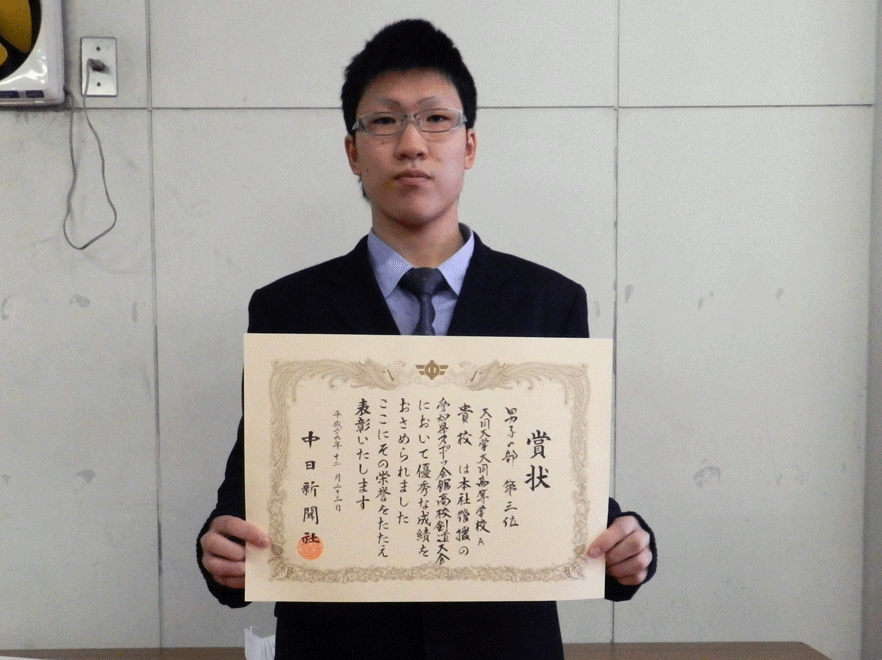 賞状
男子の部 第三位
大同大学大同高等学校A
貴校は本社後援の
愛知県スポーツ会館高校剣道大会
において優秀な成績を
おさめられました
ここにその栄誉をたたえ
表彰いたします
平成二十五年十二月二十三日
中日新聞社